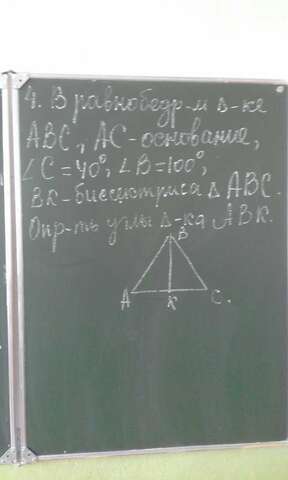 4. В равнобедр-м Δ-ке
ABC, AC - основание,
∠C = 40°, ∠B = 100°,
BK - биссектриса Δ ABC.
Опр-ть углы Δ-ка ABK.
B
A K C.